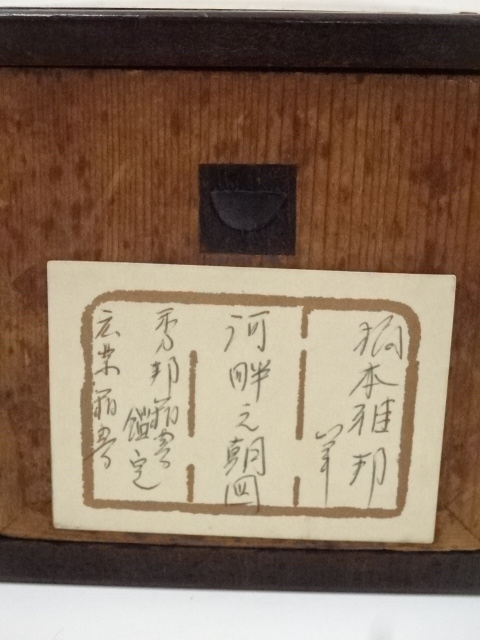 狐本雅邦
筆
河畔之朝図
秀邦箱書
鑑定
広業箱書